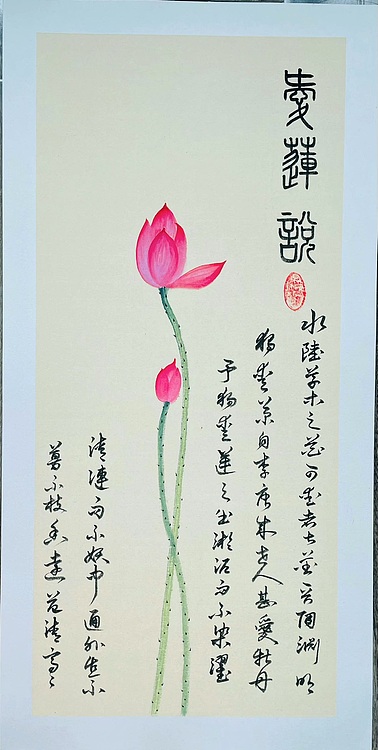 愛蓮說
水陸草木之花可愛者甚蕃晉陶淵明
獨愛菊自李唐来世人甚愛牡丹
予獨愛蓮之出淤泥而不染濯
清漣而不妖中通外直不
蔓不枝香遠益清亭々